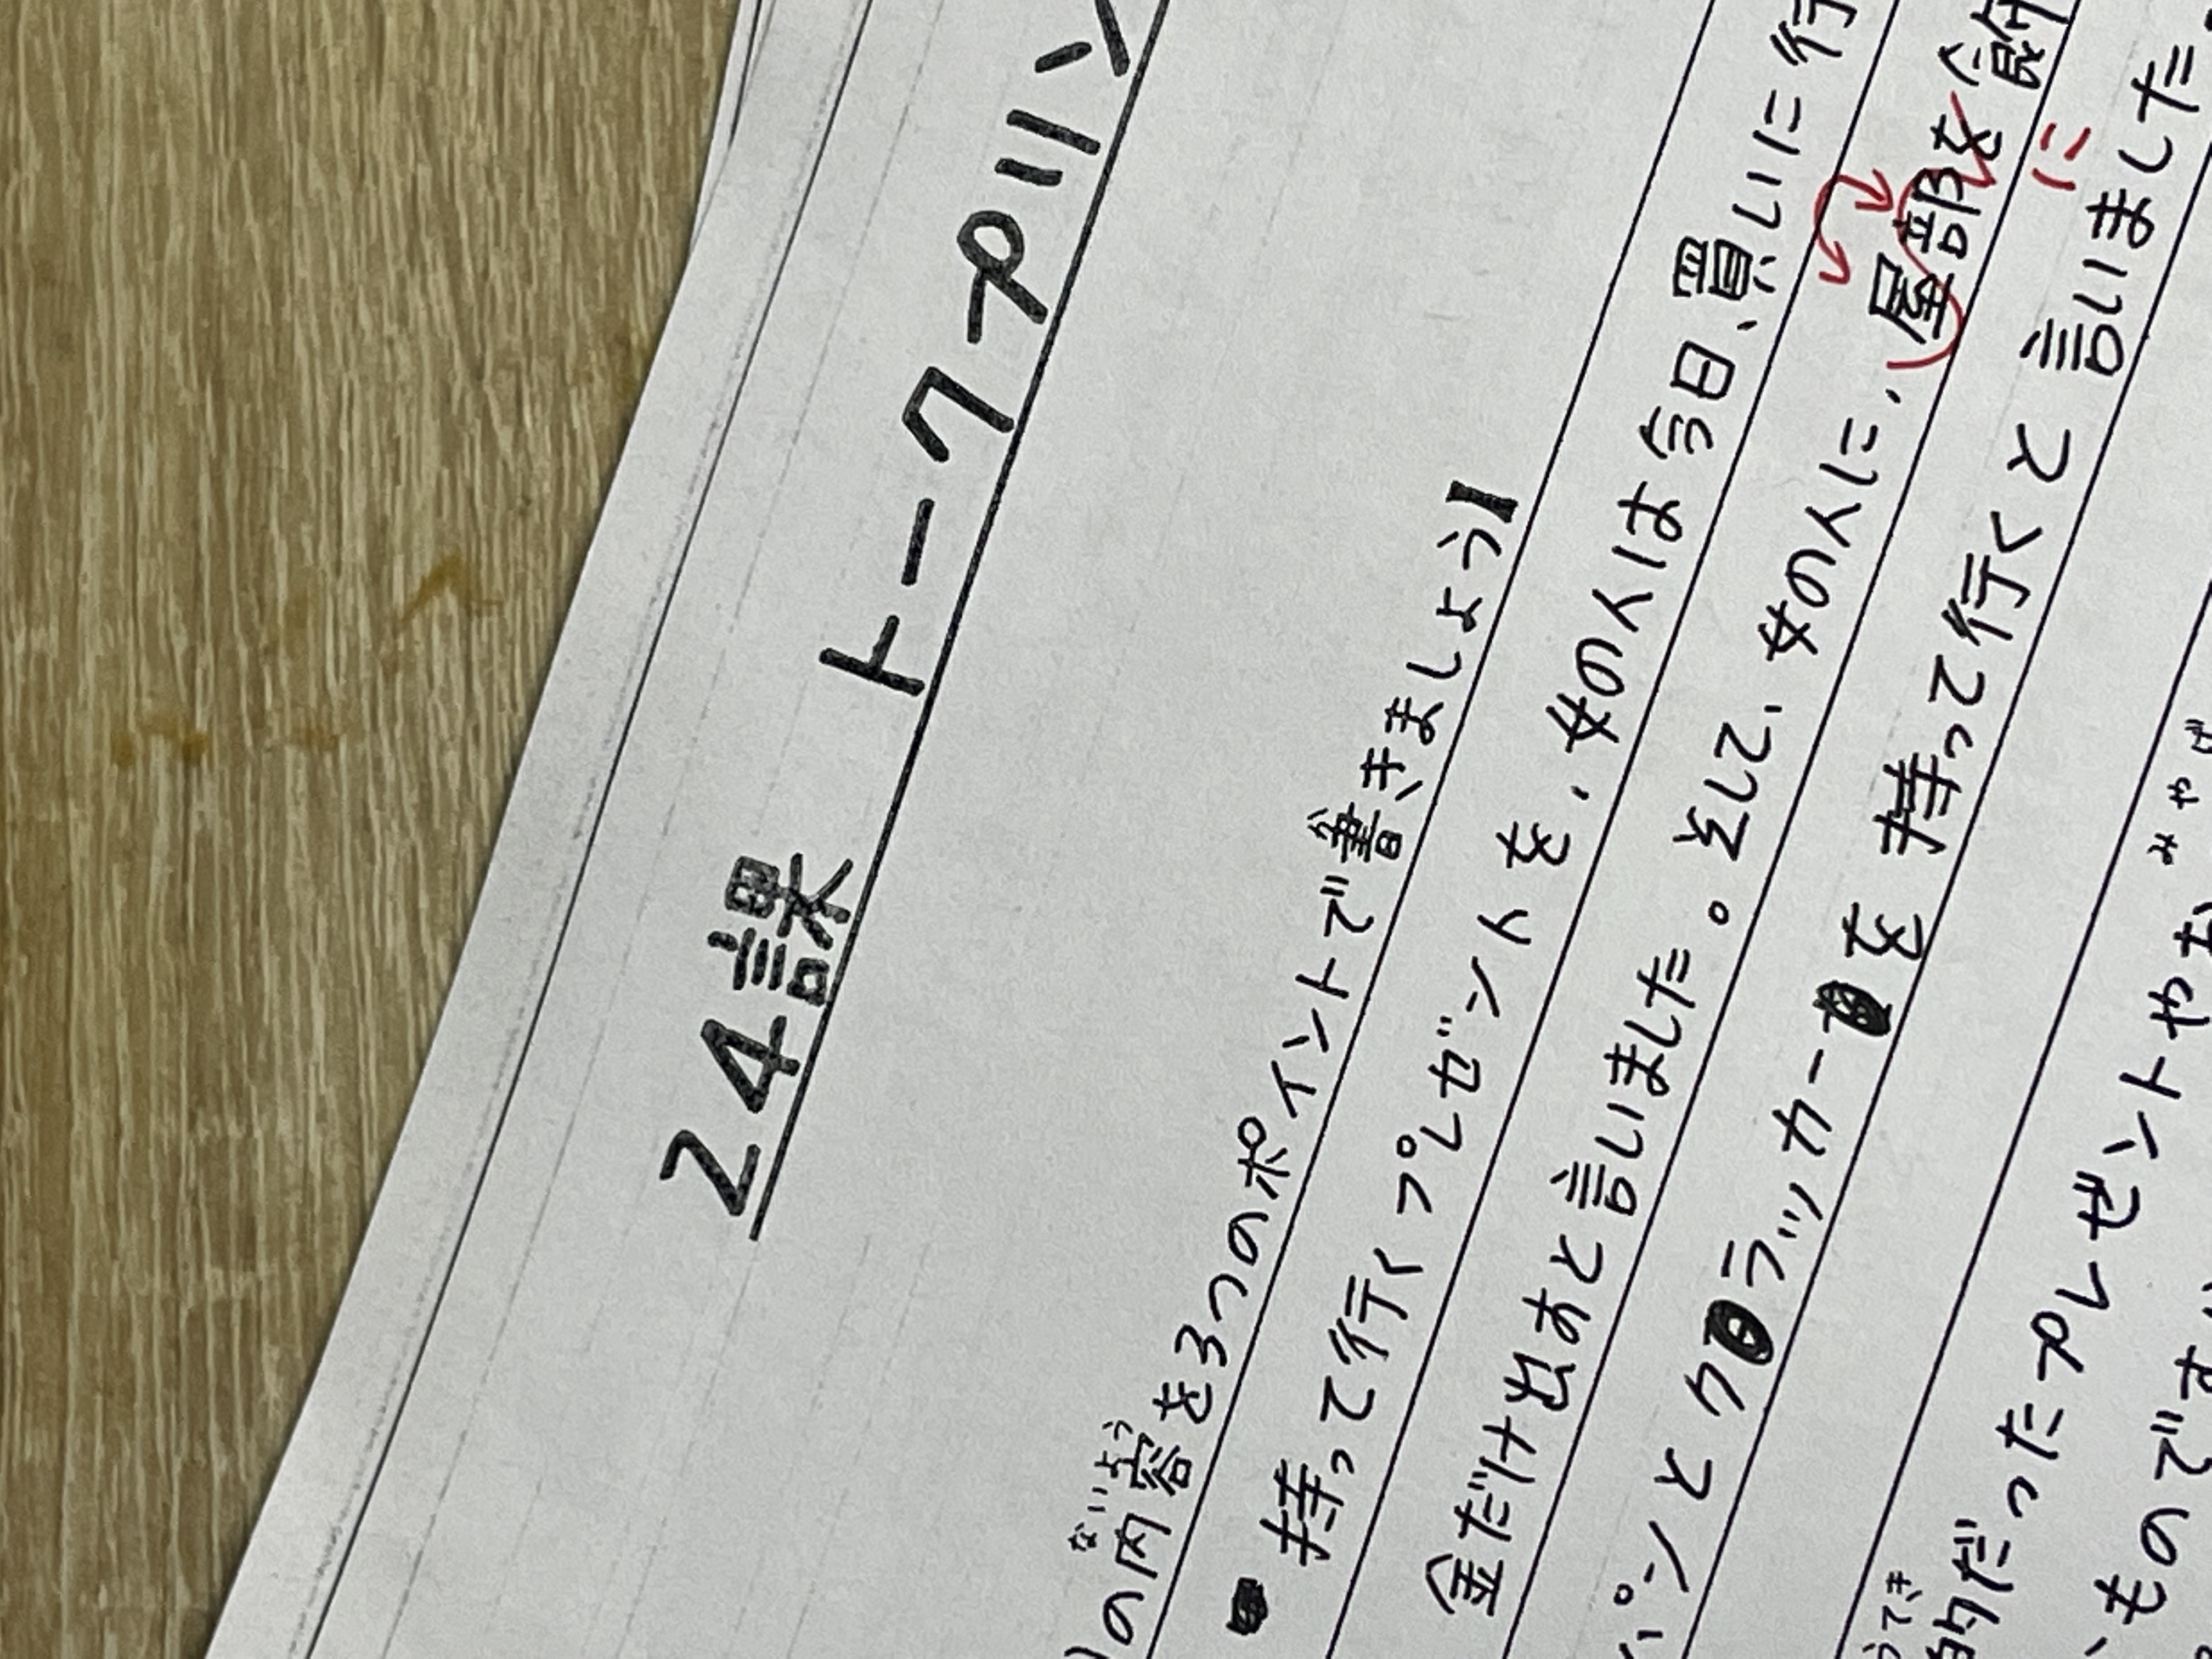 24課 トークプリン
の内容を3つのポイントで書きましょう】
ないよう
持って行くプレゼントを、女の人は今日、買いに行
金だけ出すと言いました。そして、女の人に、屋部を飾
に
パンとクラッカーを持って行くと言いました
的だったプレゼントやお
うてき
みやげ
ものです